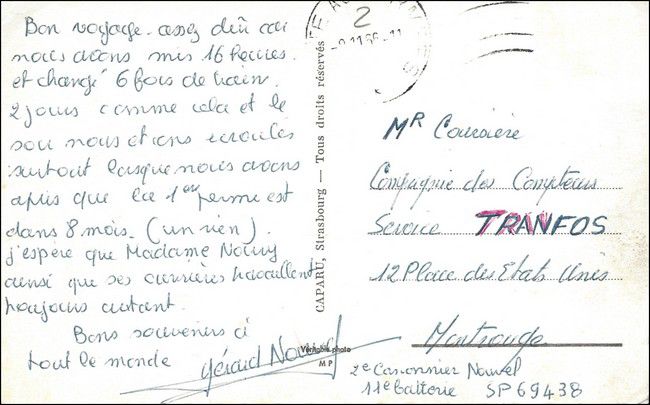 Bon voyage. assez dur car
nous avons mis 16 heures.
et changé 6 fois de train.
2 jours comme cela et le
soir nous étions écroulés
surtout lorsque nous avons
apris que la 1er perme est
dans 8 mois. (un rien).
j'espère que Madame Noury
ainsi que ses ouvrières travaillent
toujours autant.
Bons souvenirs à
tout le monde
Gérard Nouvel
CAPARU, Strasbourg — Tous droits réservés
2
11 66
Mr Courrière
Compagnie des Compteurs
Service TRANFOS
12 Place des Etats Unis
Montrouge
Véritable photo
M P
2e Canonnier Nouvel
11e batterie SP 69438